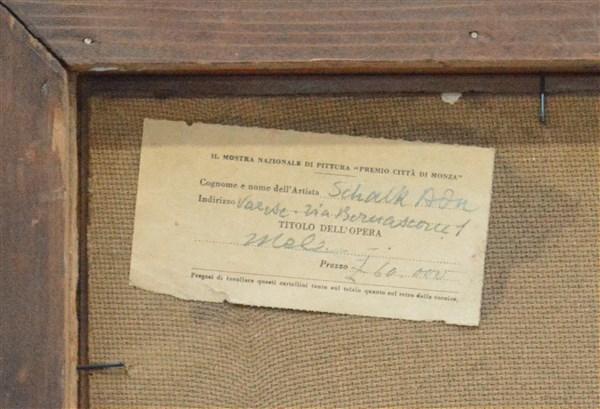 II. MOSTRA NAZIONALE DI PITTURA "PREMIO CITTÀ DI MONZA"
Cognome e nome dell'Artista Schalk Ada
Indirizzo Varese - Via Bernasconi 1
TITOLO DELL'OPERA
Mele
Prezzo £ 60.000
Pregasi di incollare questi cartellini tanto sul telaio quanto sul retro della cornice.